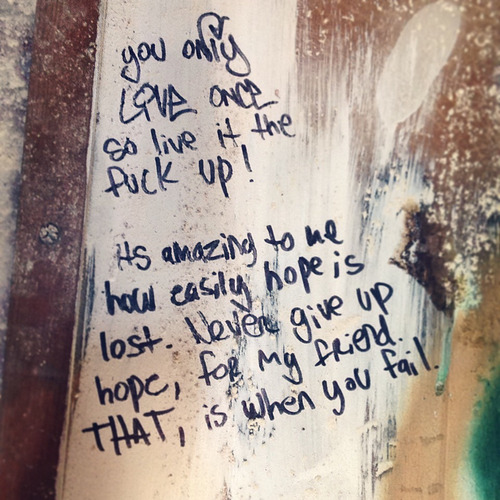 you only
LOVE ONCE
so live it the
fuck up!
its amazing to me
how easily hope is
lost. Never give up
hope, for my friend.
THAT, is when you fail.